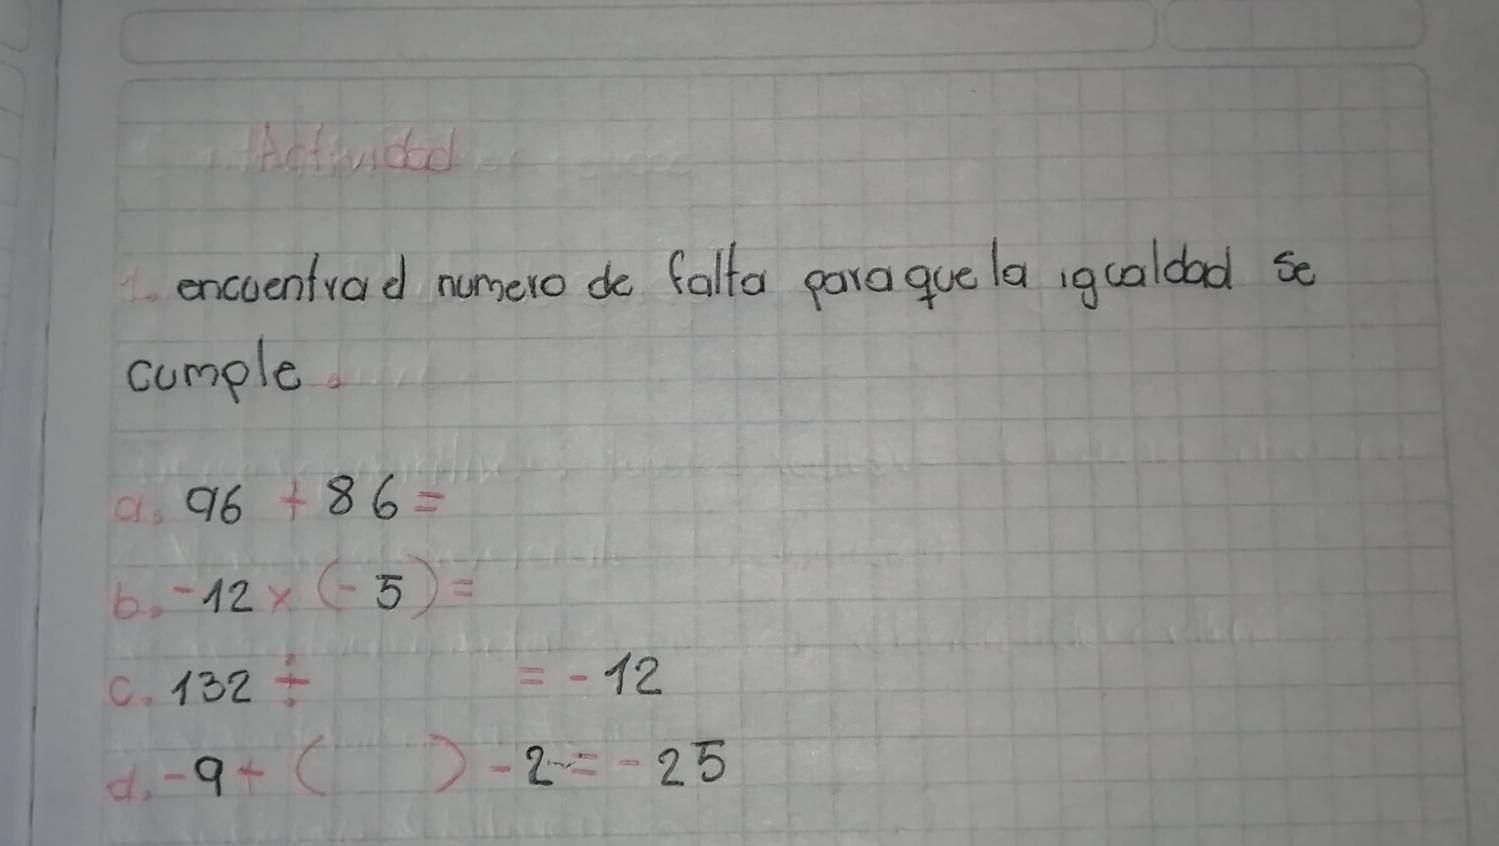 Actividad
1. encuentra el numero de falta para que la igualdad se
cumple.
a. 96 + 86 =
b. -12 x (-5) =
c. 132 ÷ = -12
d. -9 + ( ) - 2 = -25